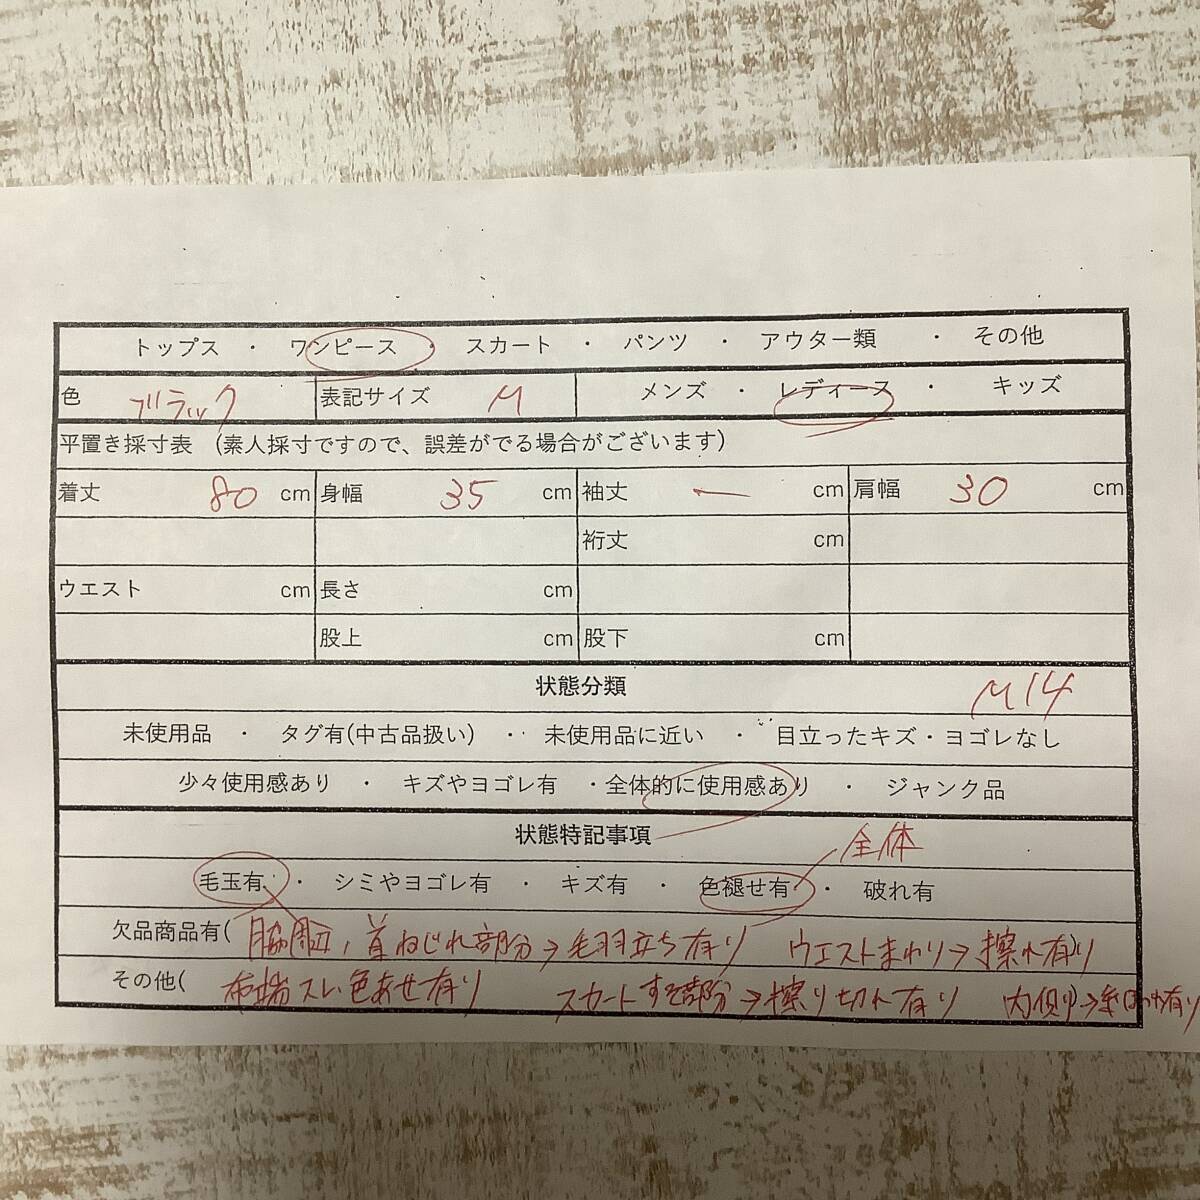 トップス ・ ワンピース スカート ・ パンツ ・ アウター類 ・ その他
色 ブラック 表記サイズ M メンズ ・ レディース ・ キッズ
平置き採寸表 (素人採寸ですので、誤差がでる場合がございます)
着丈 80 cm 身幅 35 cm 袖丈 ー cm 肩幅 30 cm
裄丈 cm
ウエスト cm 長さ cm
股上 cm 股下 cm
状態分類 M14
未使用品 ・ タグ有(中古品扱い) ・ 未使用品に近い ・ 目立ったキズ・ヨゴレなし
少々使用感あり ・ キズやヨゴレ有 ・全体的に使用感あり ・ ジャンク品
状態特記事項 全体
毛玉有 ・ シミやヨゴレ有 ・ キズ有 ・ 色褪せ有 ・ 破れ有
欠品商品有( 脇周辺、首ねじれ部分→毛羽立ち有り ウエストまわり→擦れ有り
その他( 布端スレ色あせ有り スカートすそ部分→擦り切れ有り 内側→ 有り